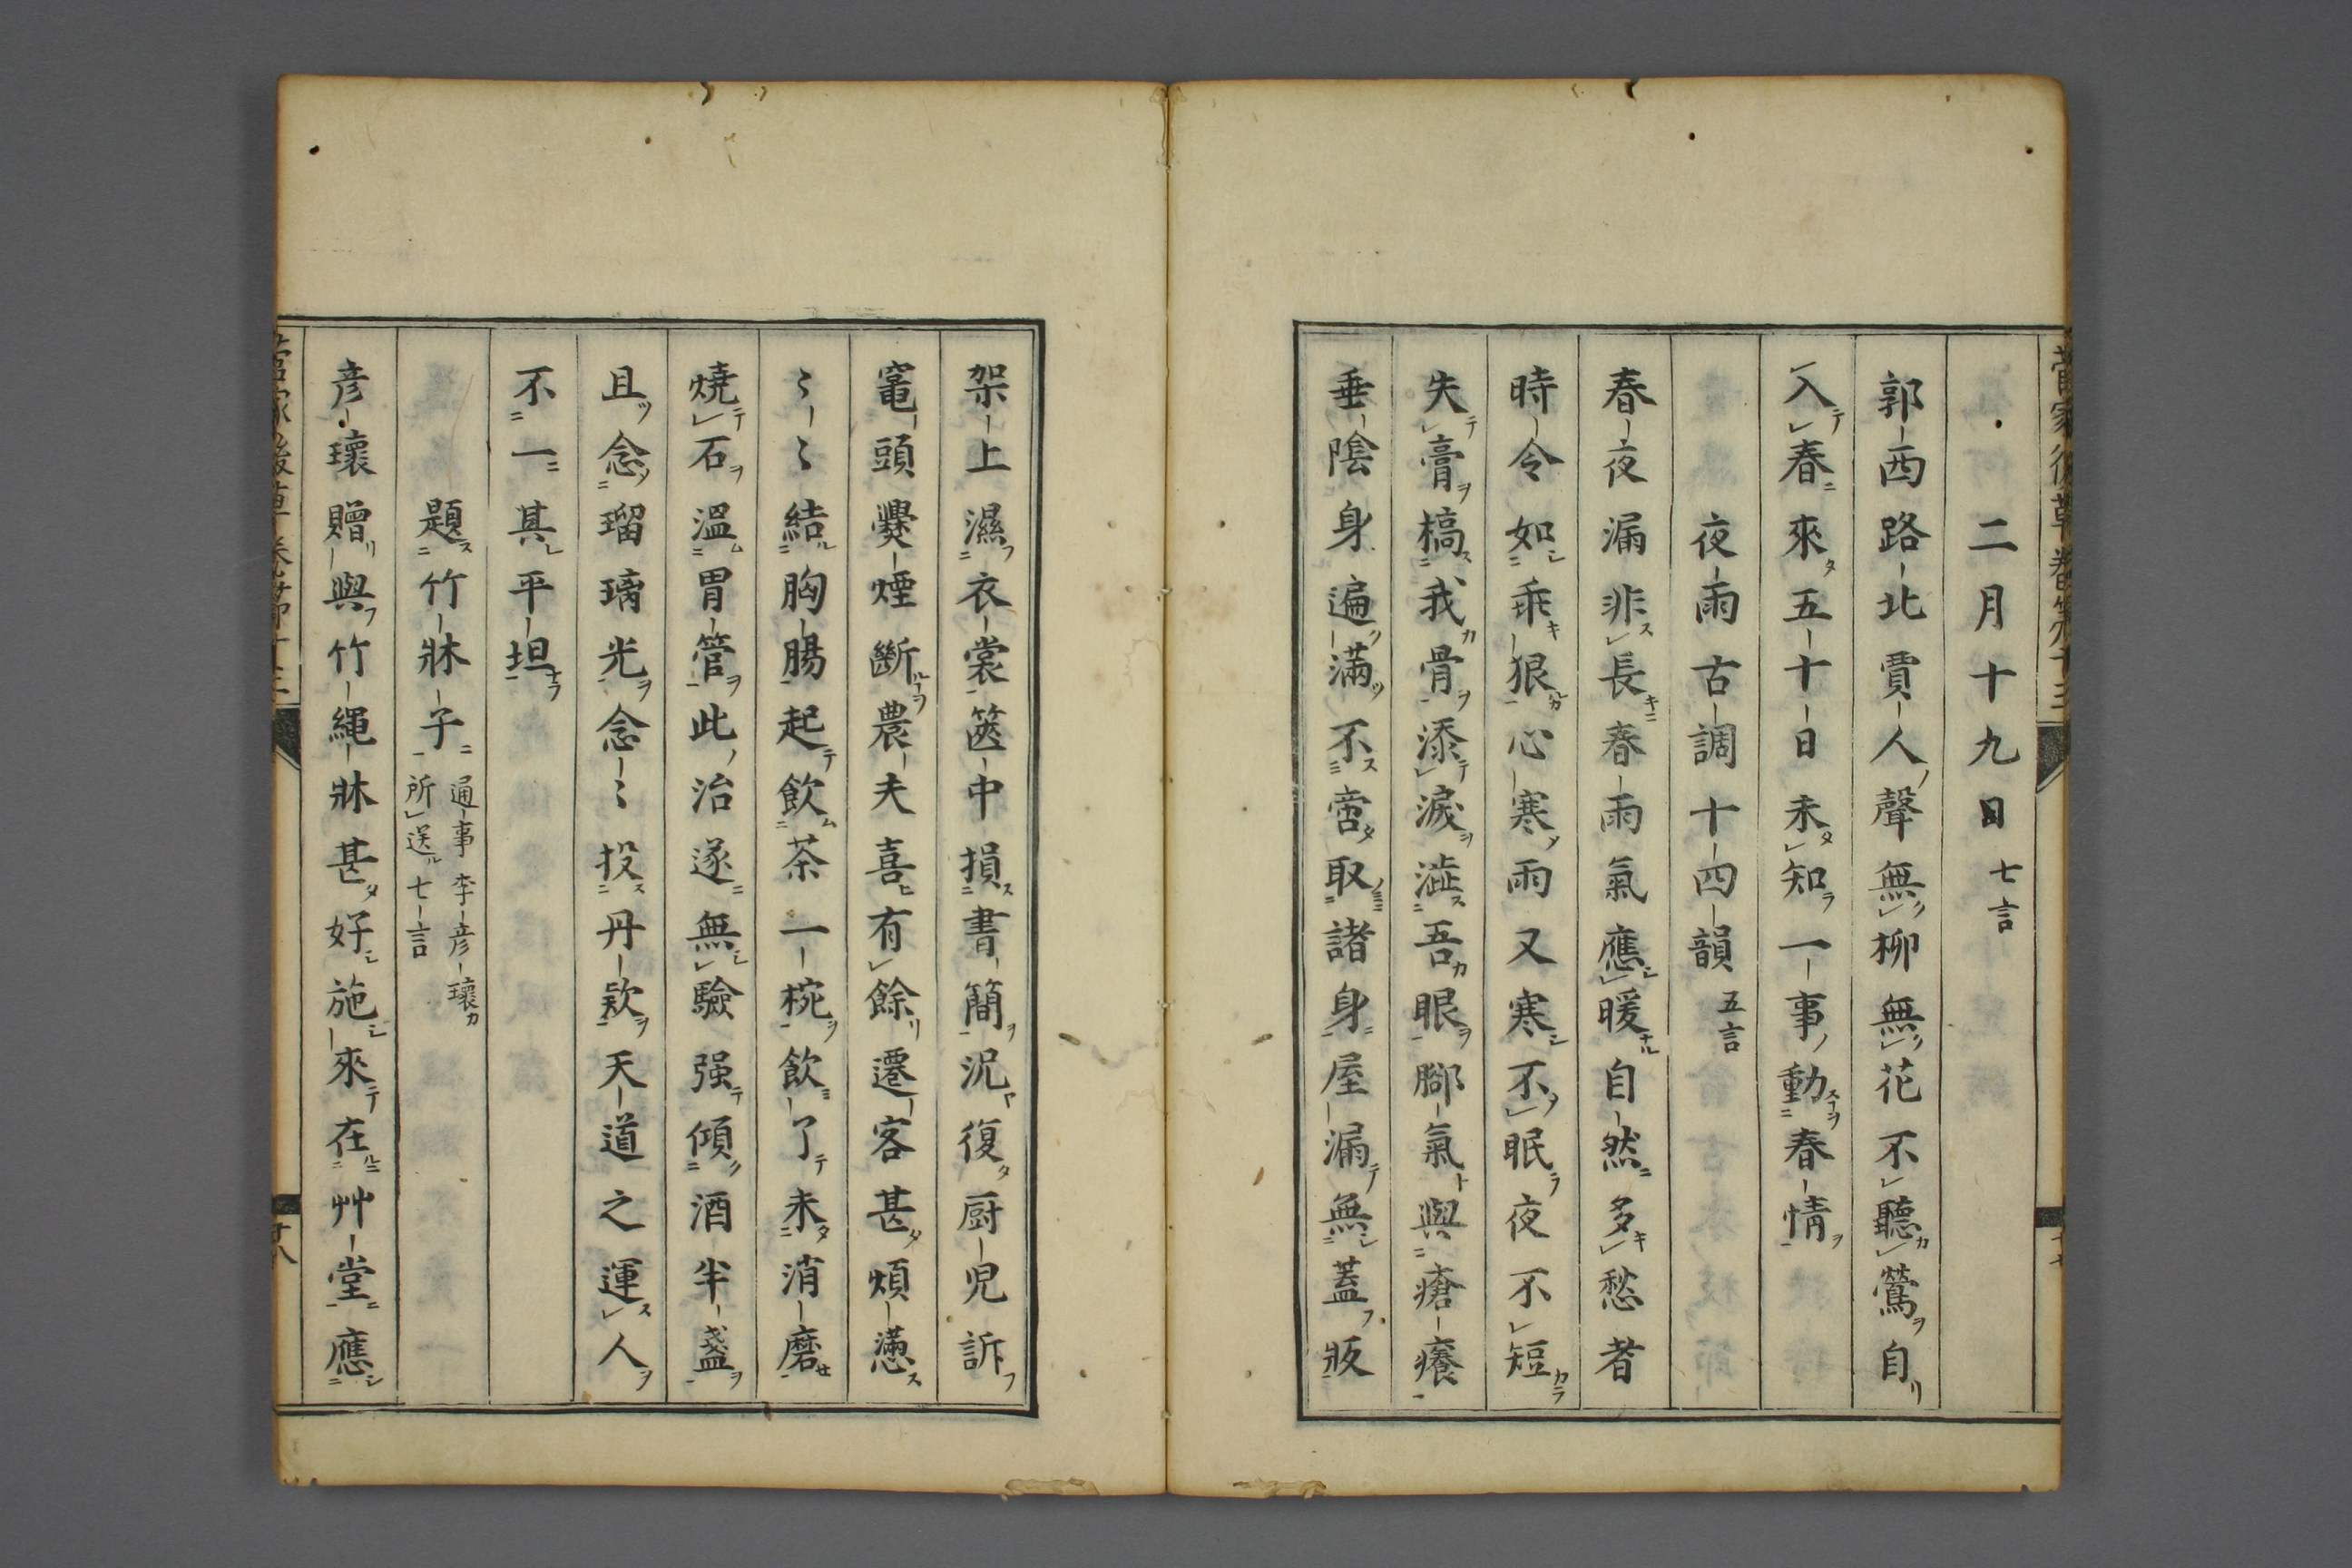 二月十九日 七言
郭西路北賈人聲無柳無花不聽鶯自
入春來五十日未知一事動春情
夜雨古調十四韻 五言
春夜漏非長春雨氣應暖自然多愁者
時令如乖狠心寒雨又寒不眠夜不短
失膏槁我骨添淚澁吾眼脚氣與瘡癢
垂陰身遍滿不啻取諸身屋漏無蓋板
架上濕衣裳篋中損書簡況復厨兒訴
竃頭爨煙斷農夫喜有餘遷客甚煩懣
〻〻結胸腸起飲茶一椀飲了未消磨
燒石溫胃管此治遂無驗强傾酒半盞
且念瑠璃光念〻投丹款天道之運人
不一其平坦
題竹牀子 通事李彦瓌
所送七言
彦瓌贈與竹繩牀甚好施來在艸堂應